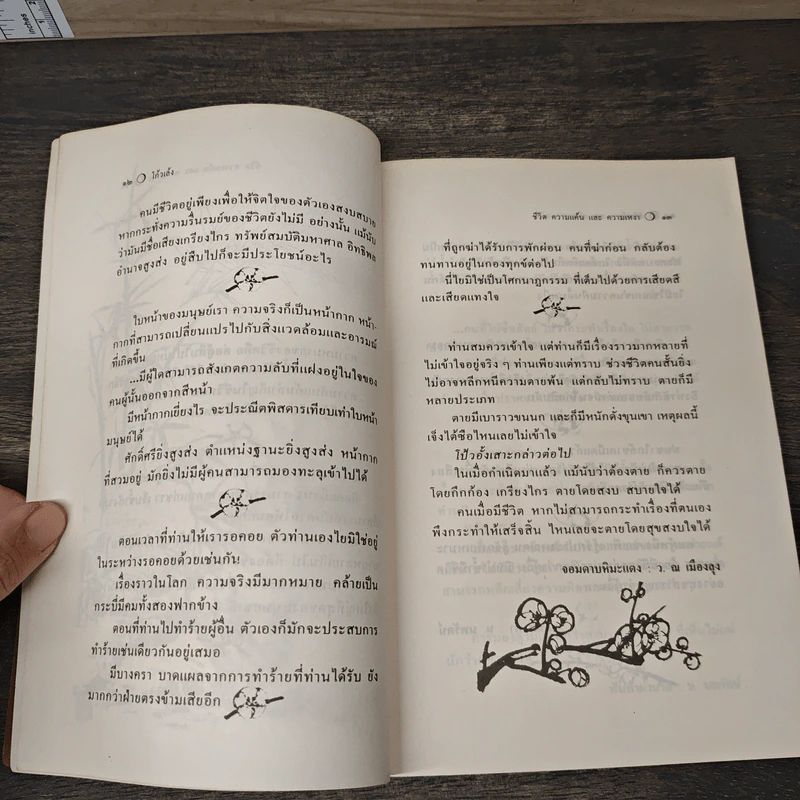 inches
๑๒ โก้วเล้ง
คนมีชีวิตอยู่เพียงเพื่อให้จิตใจของตัวเองสงบสบาย
หากกระทั่งความรื่นรมย์ของชีวิตยังไม่มี อย่างนั้น แม้นับ
ว่ามันมีชื่อเสียงเกรียงไกร ทรัพย์สมบัติมหาศาล อิทธิพล
อำนาจสูงส่ง อยู่สืบไปก็จะมีประโยชน์อะไร
ใบหน้าของมนุษย์เรา ความจริงก็เป็นหน้ากาก หน้า-
กากที่สามารถเปลี่ยนแปรไปกับสิ่งแวดล้อมและอารมณ์
ที่เกิดขึ้น
...มีผู้ใดสามารถสังเกตความลับที่แฝงอยู่ในใจของ
คนผู้นั้นออกจากสีหน้า
มีหน้ากากเยี่ยงไร จะประณีตพิสดารเทียบเท่าใบหน้า
มนุษย์ได้
ศักดิ์ศรียิ่งสูงส่ง ตำแหน่งฐานะยิ่งสูงส่ง หน้ากาก
ที่สวมอยู่ มักยิ่งไม่มีผู้คนสามารถมองทะลุเข้าไปได้
ตอนเวลาที่ท่านให้เรารอคอย ตัวท่านเองไยมิใช่อยู่
ในระหว่างรอคอยด้วยเช่นกัน!
เรื่องราวในโลก ความจริงมีมากหมาย คล้ายเป็น
กระบี่มีคมทั้งสองฟากข้าง
ตอนที่ท่านไปทำร้ายผู้อื่น ตัวเองก็มักจะประสบการ
ทำร้ายเช่นเดียวกันอยู่เสมอ
มีบางครา บาดแผลจากการทำร้ายที่ท่านได้รับ ยัง
มากกว่าฝ่ายตรงข้ามเสียอีก
ชีวิต ความแค้น และ ความเหงา ๑๓
ที่ถูกฆ่าได้รับการพักผ่อน คนที่ฆ่าก่อน กลับต้อง
ทนทานอยู่ในกองทุกข์ต่อไป
นี่ไยมิใช่เป็นโศกนาฏกรรม ที่เต็มไปด้วยการเสียดสี
และเสียดแทงใจ
ท่านสมควรเข้าใจ แต่ท่านก็มีเรื่องราวมากหลายที่
ไม่เข้าใจอยู่จริง ๆ ท่านเพียงแต่ทราบ ช่วงชีวิตคนสั้นยิ่ง
ไม่อาจหลีกหนีความตายพ้น แต่กลับไม่ทราบ ตายก็มี
หลายประเภท
ตายมีเบาราวขนนก และก็มีหนักดั่งขุนเขา เหตุผลนี้
เจ็งได้ซือไหนเลยไม่เข้าใจ
โป้วอั้งเสาะกล่าวต่อไป
ในเมื่อกำเนิดมาแล้ว แม้นับว่าต้องตาย ก็ควรตาย
โดยกึกก้อง เกรียงไกร ตายโดยสงบ สบายใจได้
คนเมื่อมีชีวิต หากไม่สามารถกระทำเรื่องที่ตนเอง
พึงกระทำให้เสร็จสิ้น ไหนเลยจะตายโดยสุขสงบใจได้
จอมดาบหิมะแดง : ว. ณ เมืองลุง